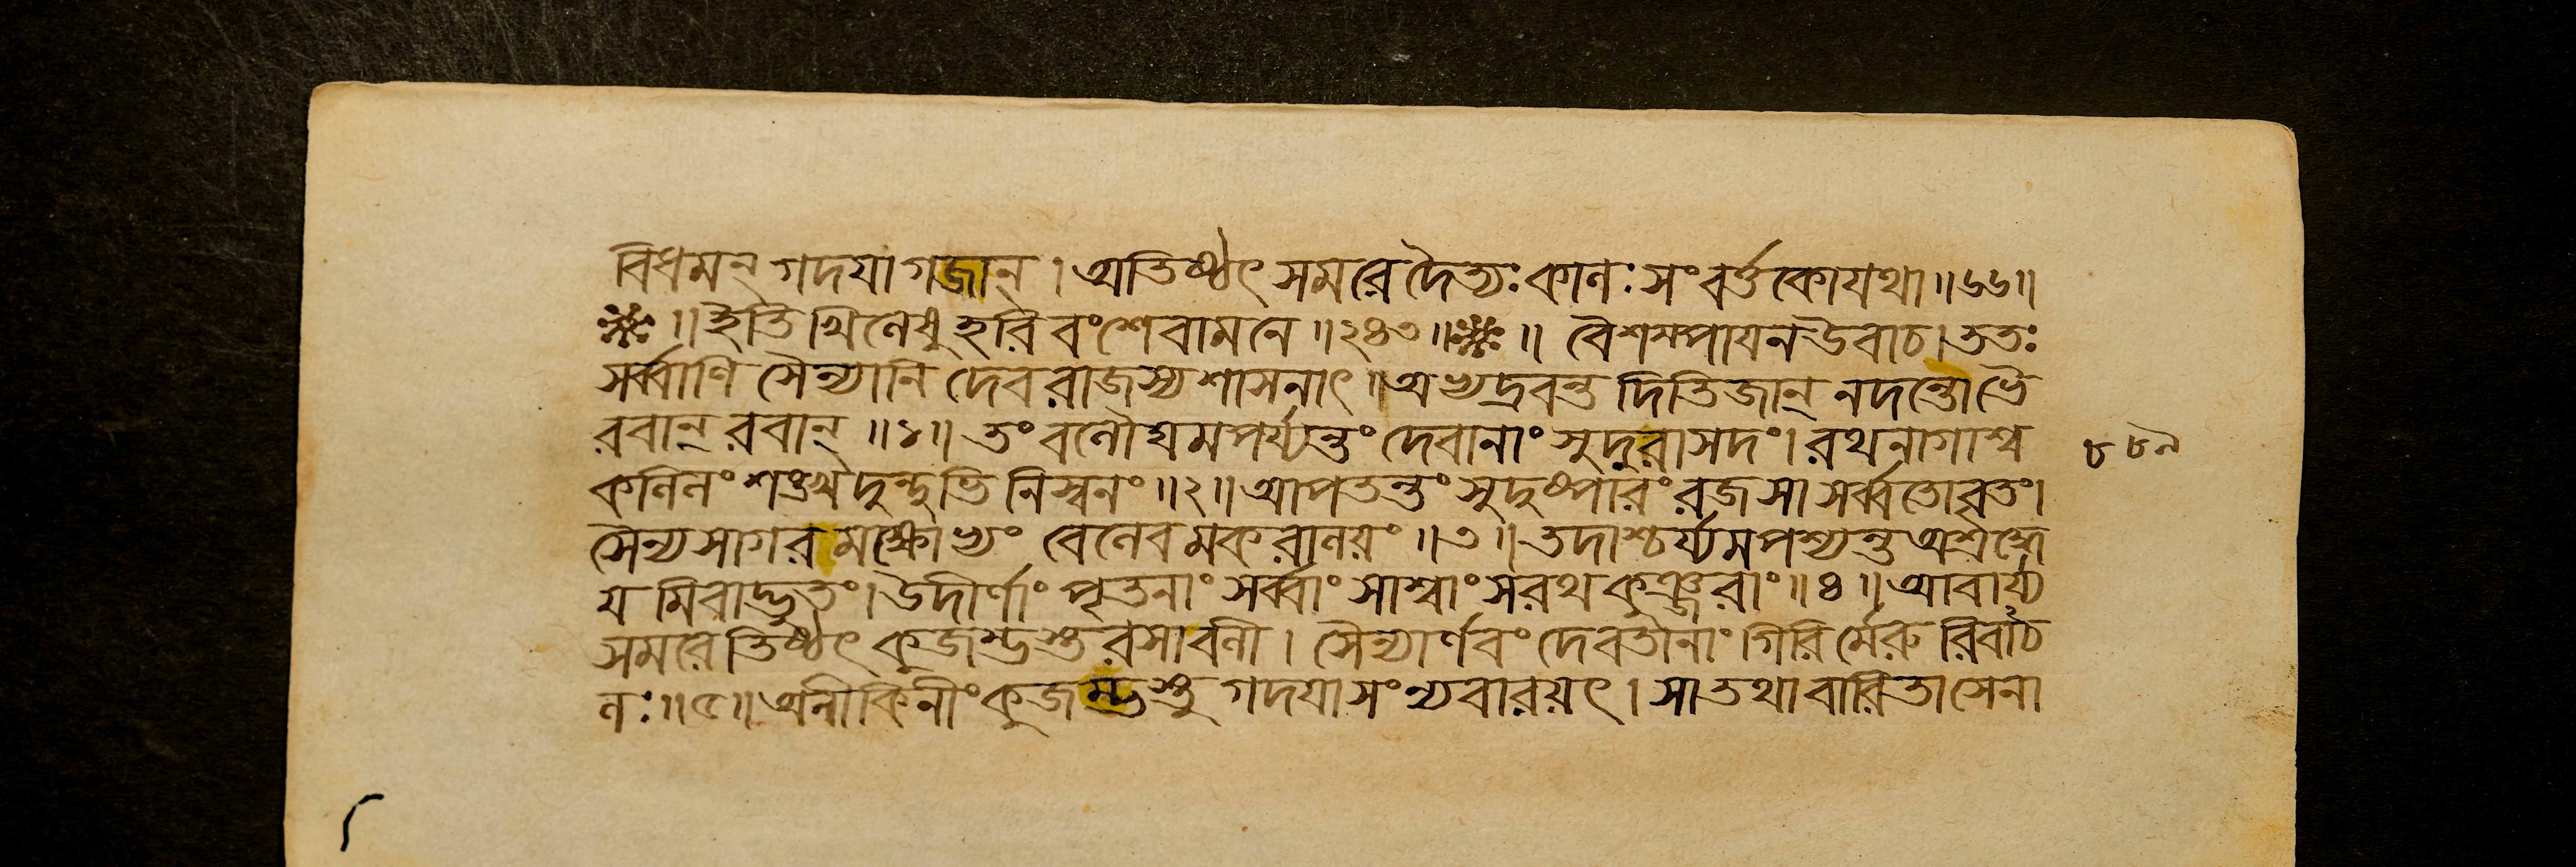 বিধমন্ গদযা গজান্ । অতিষ্ঠৎ সমরে দৈত্যঃ কালঃ সংবর্ত্তকো যথা ॥ ৬৬ ॥
※ ॥ ইতি খিলেষু হরিবংশে বামনে ॥ ২৪৩ ॥ ※ ॥ বৈশম্পাযন উবাচ । ততঃ
সর্ব্বাণি সৈন্যানি দেবরাজস্য শাসনাৎ । অভ্যদ্রবন্ত দিতিজান্ নদন্তো ভৈ
রবান্ রবান্ ॥ ১ ॥ তং বলৌঘমপর্য্যন্তং দেবানাং সুদুরাসদং । রথনাগাশ্ব
কলিলং শঙ্খদুন্দুভিনিস্বনং ॥ ২ ॥ আপতন্তং সুদুষ্পারং রজসা সর্ব্বতো বৃতং ।
সৈন্যসাগরমক্ষোভ্যং বেলেব মকরালয়ং ॥ ৩ ॥ তদাশ্চর্য্যমপশ্যন্ত অশ্রদ্ধে
যমিবাদ্ভুতং । উদীর্ণাং পৃতনাং সর্ব্বাং সাশ্বাং সরথকুঞ্জরাং ॥ ৪ ॥ আবার্য্য
সমরে তিষ্ঠৎ কুজম্ভস্তরসা বলী । সৈন্যার্ণবং দেবতানাং গিরির্মেরুরিবাচ
লঃ ॥ ৫ ॥ অনীকিনীং কুজম্ভস্তু গদযা সংন্যবারয়ৎ । সা তথা বারিতা সেনা
৮৮৯